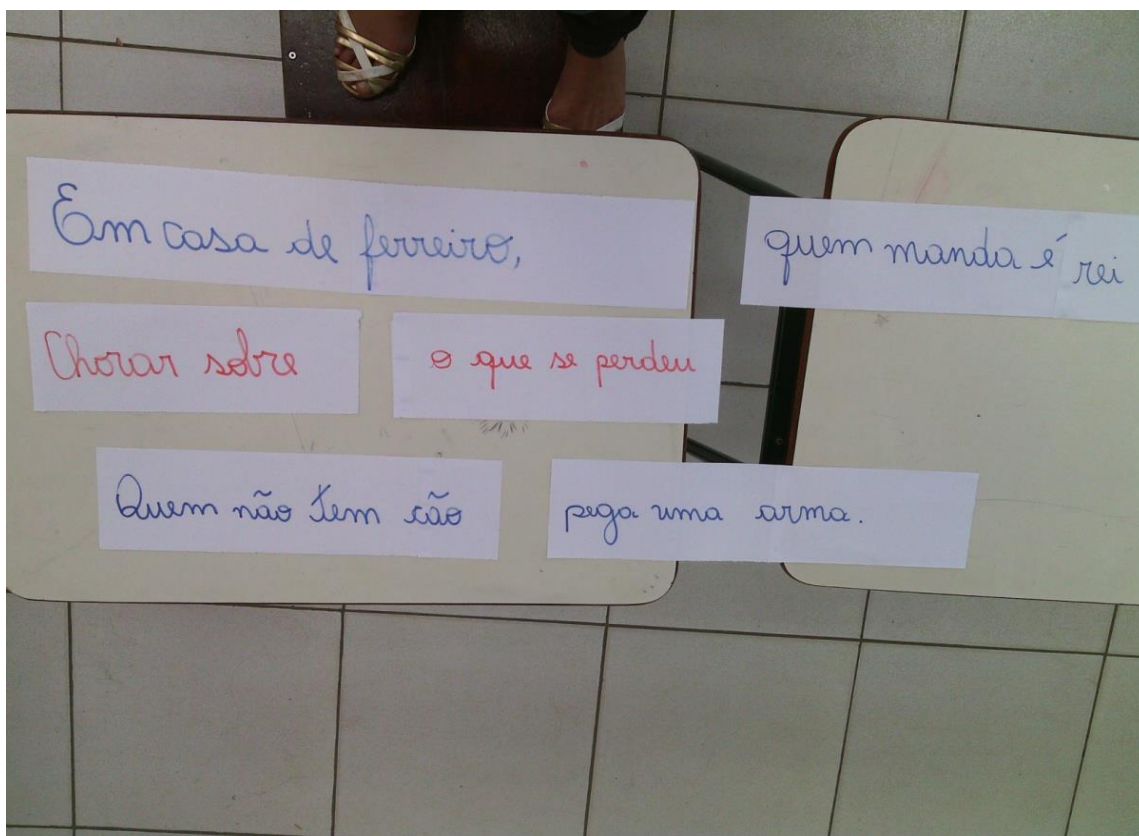 Em casa de ferreiro, quem manda é rei
Chorar sobre o que se perdeu
Quem não tem cão pega uma arma.